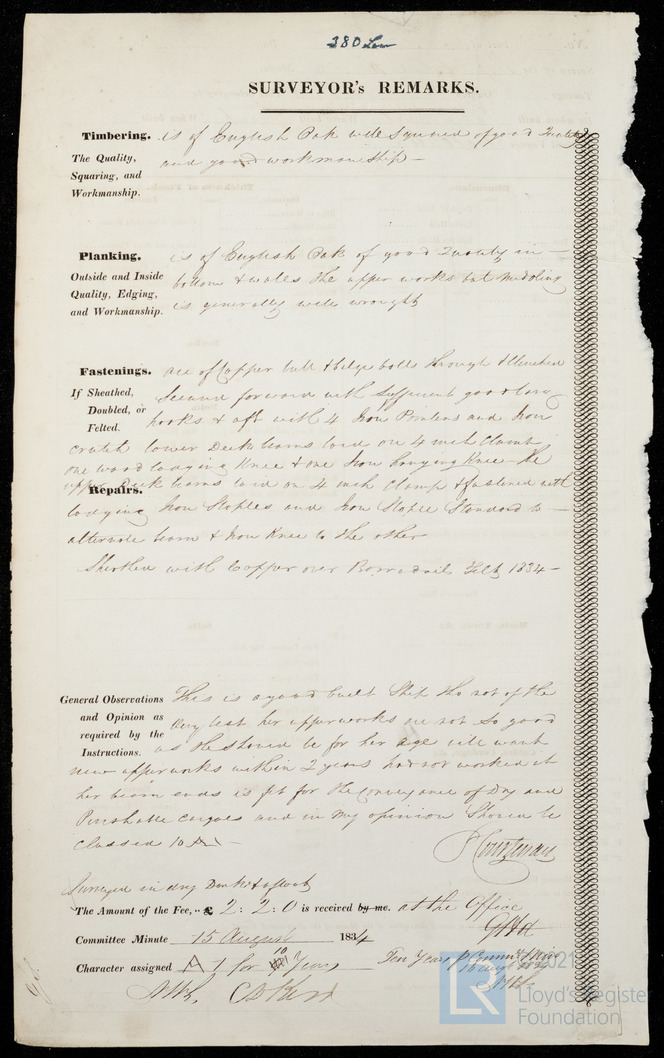 380 Lon
SURVEYOR's REMARKS.
Timbering. is of English Oak well squared of good Quality
The Quality, Squaring, and Workmanship. and good workmanship –
Planking. is of English Oak of good Quality in –
Outside and Inside Quality, Edging, and Workmanship. bottom & wales the upper works but middling
is generally well wrought
Fastenings. are of Copper butt & bilge bolts through & Clenched
If Sheathed, Doubled, or Felted. Secured forward with sufficient good long
hooks & aft with 4 Iron Pointers and Iron
crutch lower Deck beams laid on 4 inch Clamp,
one wood lodging Knee & one Iron hanging Knee – the
upper Deck beams laid on 4 inch Clamp & fastened with
Repairs.
lodging Iron Staples and Iron Staple Standard to –
alternate beam & Iron Knee to the other
Sheathed with Copper over Borrodail Felt 1834 –
General Observations and Opinion as required by the Instructions. This is a good built Ship tho not of the
very best her upperworks are not so good
as they should be for her age will want
new upperworks within 2 years has not worked at
her beam ends is fit for the Conveyance of Dry and
Perishable cargoes and in my opinion Should be
Classed 10 A –
P Courtenay
Surveyed in dry Dock & afloat
The Amount of the Fee, .. £ 2 : 2 : 0 is received by me. at the Office
Committee Minute 15 August 1834
Character assigned A 1 for 10 Years
Ten Years
©2021
LR
Lloyd's Register
Foundation